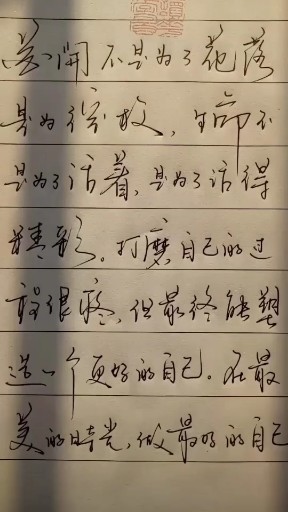 花开不是为了花落
是为绽放,生命不
是为了活着,是为了活得
精彩。打磨自己的过
程很疼,但最终能塑
造一个更好的自己。在最
美的时光,做最好的自己